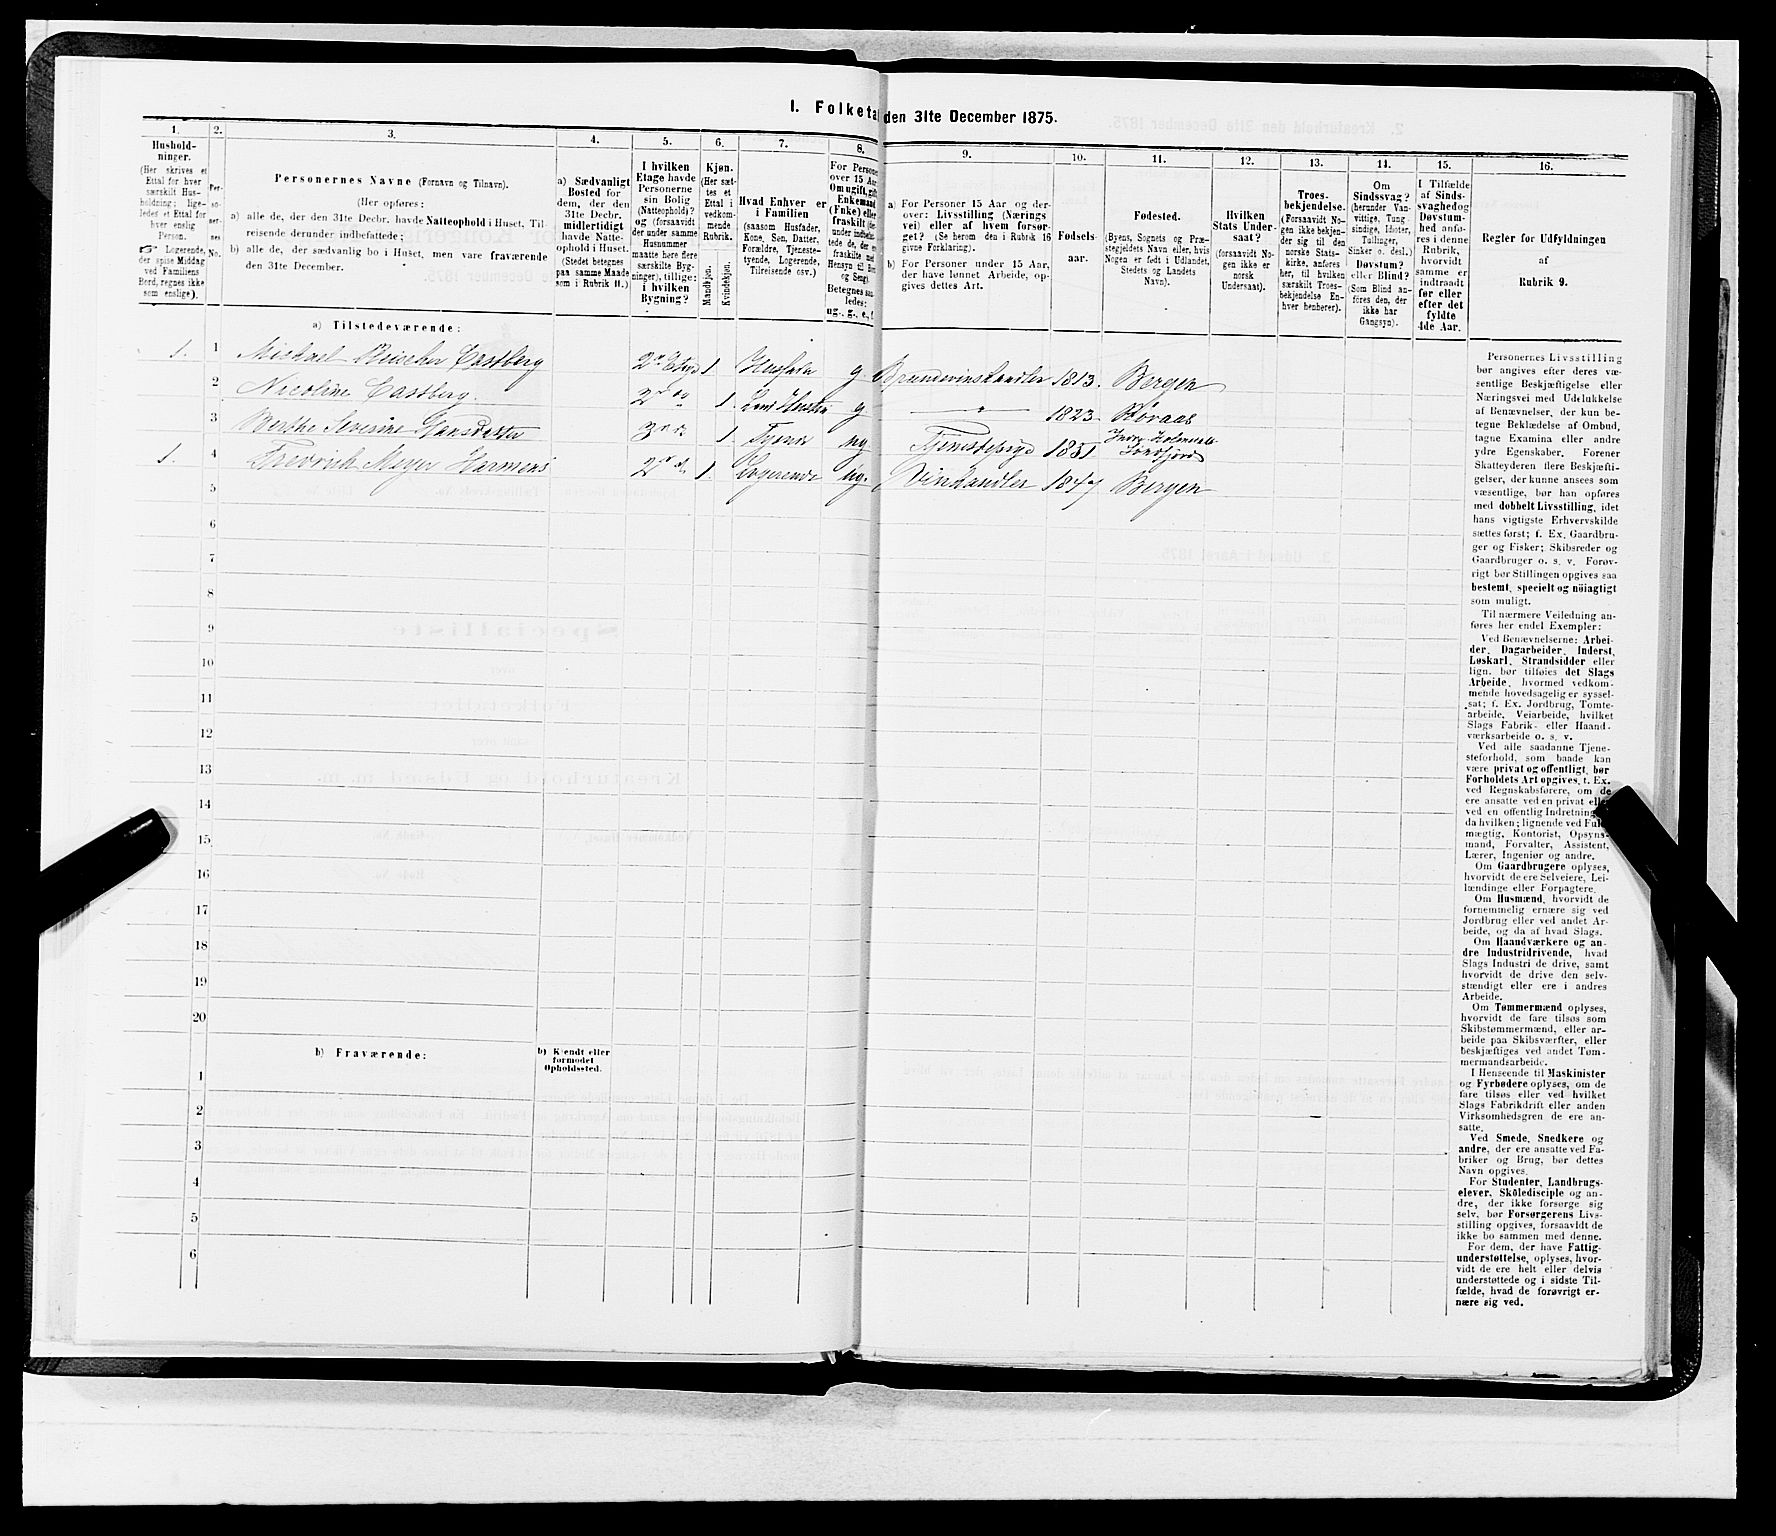 I. Folketal den 31te December 1875.
1.
Hushold-
ninger.
(Her skrives et
Ettal for hver
særskilt Hus-
holdning; lige-
ledes et Ettal for
hver enslig
Person.
☞ Logerende,
der spise Middag
ved Familiens
Bord, regnes ikke
som enslige).
2.
Per-
so-
ner-
nes
No.
3.
Personernes Navne (Fornavn og Tilnavn).
(Her opføres:
a) alle de, der den 31te Decbr. havde Natteophold i Huset, Til-
reisende derunder indbefattede;
b) alle de, der sædvanlig bo i Huset, men vare fraværende
den 31te December.
4.
a) Sædvanligt
Bosted for
dem, der den
31te Decbr.
midlertidigt
havde Natte-
ophold i Huset.
(Stedet betegnes
paa samme Maade
som i Rubrik 11.)
5.
I hvilken
Etage havde
Personerne
sin Bolig
(Natteophold)?
og (forsaavidt
der under samme
Husnummer
maatte høre flere
særskilte Byg-
ninger), tillige:
i hvilken
Bygning?
6.
Kjøn.
(Her sæt-
tes et
Ettal i
vedkom-
mende
Rubrik.
Mandkjøn.
Kvindekjøn.
7.
Hvad Enhver er
i Familien
(saasom Husfader,
Kone, Søn, Datter,
Forældre, Tjeneste-
tyende, Logerende,
Tilreisende osv.)
8.
For Personer
over 15 Aar:
Om ugift, gift,
Enkemand
(Enke) eller
fraskilt
9.
a) For Personer 15 Aar og der-
over: Livsstilling (Nærings
vei) eller af hvem forsør-
get? (Se herom den i Rubrik 16
givne Forklaring).
b) For Personer under 15 Aar,
der have lønnet Arbeide, op-
gives dettes Art.
10.
Fødsels-
aar.
11.
Fødested.
(Byens, Sognets og Præ-
stegjeldets Navn eller, hvis
Nogen er født i Udlandet,
Stedets og Landets
Navn).
12.
Hvilken
Stats Under-
saat?
(forsaavidt No-
gen ikke er
norsk
Undersaat).
13.
Troes-
bekjendelse.
(Forsaavidt No-
gen ikke bekjen-
der sig til den
norske Stats-
kirke, anføres
her, til hvilken
særskilt Troes-
bekjendelse En-
hver henhører).
14.
Om
Sindssvag?
(herunder Van-
vittige, Tung-
sindige, Idioter,
Tullinger,
Sinker o. desl.)
Døvstum?
eller Blind?
(Som Blind an-
føres den, der
ikke har
Gangsyn).
15.
I Tilfælde
af Sinds-
svaghed og
Døvstum-
hed anfø-
res i denne
Rubrik,
hvorvidt
samme er
indtraadt
før eller
efter det
fyldte
4de Aar.
16.
Regler for Udfyldningen
af
Rubrik 9.
a) Tilstedeværende:
1. 1 Castberg 1. g. Brændevinshandler 1813. Bergen
2 Nicoline Castberg. 1. g " 1823
3 Berthe Severine 1. ug 1851
1. 4 Fredrik Meyer 1. Logerende ug. Vinhandler 1847 Bergen
5
6
7
8
9
10
11
12
13
14
15
16
17
18
19
20
b) Fraværende:
b) Kjendt eller
formodet
Opholdssted.
1
2
3
4
5
6
Personernes Livsstilling
bør angives efter deres væ-
sentlige Beskjæftigelse eller
Næringsvei med Udelukkelse
af Benævnelser, der kun be-
tegne Beklædelse af Ombud,
tagne Examina eller andre
ydre Egenskaber. Forener
Skatteyderen flere Beskjæfti-
gelser, der kunne ansees som
væsentlige, bør han opføres
med dobbelt Livsstilling, idet
hans vigtigste Erhvervskilde
sættes først; f. Ex. Gaardbru-
ger og Fisker; Skibsreder og
Gaardbruger o. s. v. Forøv-
rigt bør Stillingen opgives saa
bestemt, specielt og nöiagtigt
som muligt.
Til nærmere Veiledning an-
føres her endel Exempler:
Ved Benævnelserne: Arbei-
der, Dagarbeider, Inderst,
Løskarl, Strandsidder eller
lign. bør tilføies det Slags
Arbeide, hvormed vedkom-
mende hovedsagelig er syssel-
sat; f. Ex. Jordbrug, Tomte-
arbeide, Veiarbeide, hvilket
Slags Fabrik- eller Haand-
værksarbeide o. s. v.
Ved alle saadanne Tjene-
steforhold, som baade kan
være privat og offentligt, bør
Forholdets Art opgives, t. Ex.
ved Regnskabsførere, om de
ere ansatte ved en privat eller
ved en offentlig Indretning
da hvilken; lignende ved Fuld-
mægtig, Kontorist, Opsyns-
mand, Forvalter, Assistent,
Lærer, Ingeniør og andre.
Om Gaardbrugere oplyses,
hvorvidt de ere Selveiere, Lei-
lændinge eller Forpagtere.
Om Husmænd, hvorvidt de
fornemmelig ernære sig ved
Jordbrug eller ved andet Ar-
beide, og da af hvad Slags.
Om Haandværkere og an-
dre Industridrivende, hvad
Slags Industri de drive, samt
hvorvidt de drive den selv-
stændigt eller ere i andres
Arbeide.
Om Tømmermænd oplyses,
hvorvidt de fare tilsøs som
Skibstømmermænd, eller ar-
beide paa Skibsværfter, eller
beskjæftiges ved andet Tøm-
mermandsarbeide.
I Henseende til Maskinister
og Fyrbødere oplyses, om de
fare tilsøs eller ved hvilket
Slags Fabrikdrift eller anden
Virksomhedsgren de ere an-
satte.
Ved Smede, Snedkere og
andre, der ere ansatte ved Fa-
briker og Brug, bør dettes
Navn opgives.
For Studenter, Landbrugs-
elever, Skoledisciple og an-
dre, der ikke forsørge sig
selv, bør Forsørgerens Livs-
stilling opgives, forsaavidt de
ikke bo sammen med denne.
For dem, der have Fattig-
understøttelse, oplyses, hvor-
vidt de ere helt eller delvis
understøttede og i sidste Til-
fælde, hvad de forøvrigt er-
nære sig ved.